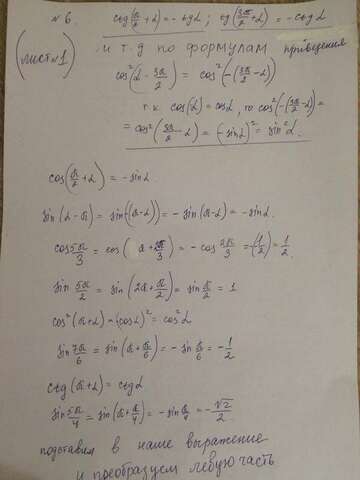 №6. ctg(π/2+α) = -tgα ; tg(3π/2+α) = -ctgα
(лист №1)
и т.д по формулам приведения
cos²(α-3π/2) = cos²(-(3π/2-α))
т.к cos(α) = cosα, то cos²(-(3π/2-α)) =
= cos²(3π/2-α) = (-sinα)² = sin²α.
cos(π/2+α) = -sinα.
sin(α-π) = sin(-(π-α)) = -sin(π-α) = -sinα.
cos 5π/3 = cos(π+2π/3) = -cos 2π/3 = -(-1/2) = 1/2.
sin 5π/2 = sin(2π+π/2) = sin π/2 = 1
cos²(π+α) = (-cosα)² = cos²α
sin 7π/6 = sin(π+π/6) = -sin π/6 = -1/2
ctg(π+α) = ctgα
sin 5π/4 = sin(π+π/4) = -sin π/4 = -√2/2.
подставим в наше выражение
и преобразуем левую часть